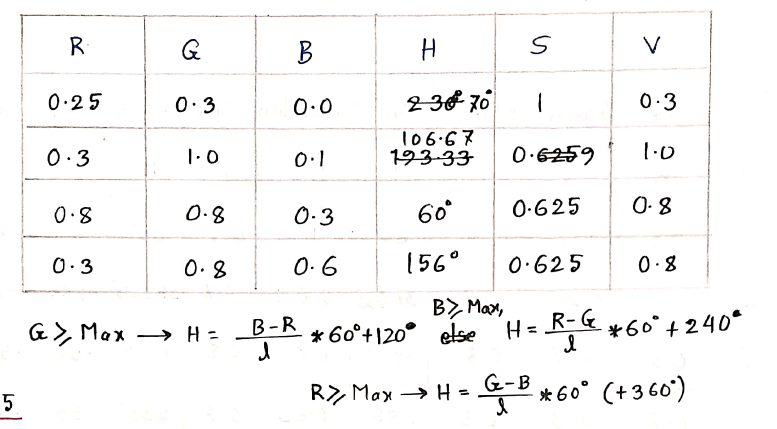 R G B H S V
0.25 0.3 0.0 230° 70° 1 0.3
106.67
0.3 1.0 0.1 193.33 0.6259 1.0
0.8 0.8 0.3 60° 0.625 0.8
0.3 0.8 0.6 156° 0.625 0.8
B⩾Max,
G⩾Max → H = B-R/l *60°+120° else H = R-G/l *60°+240°
R⩾Max → H = G-B/l *60° (+360°)
5